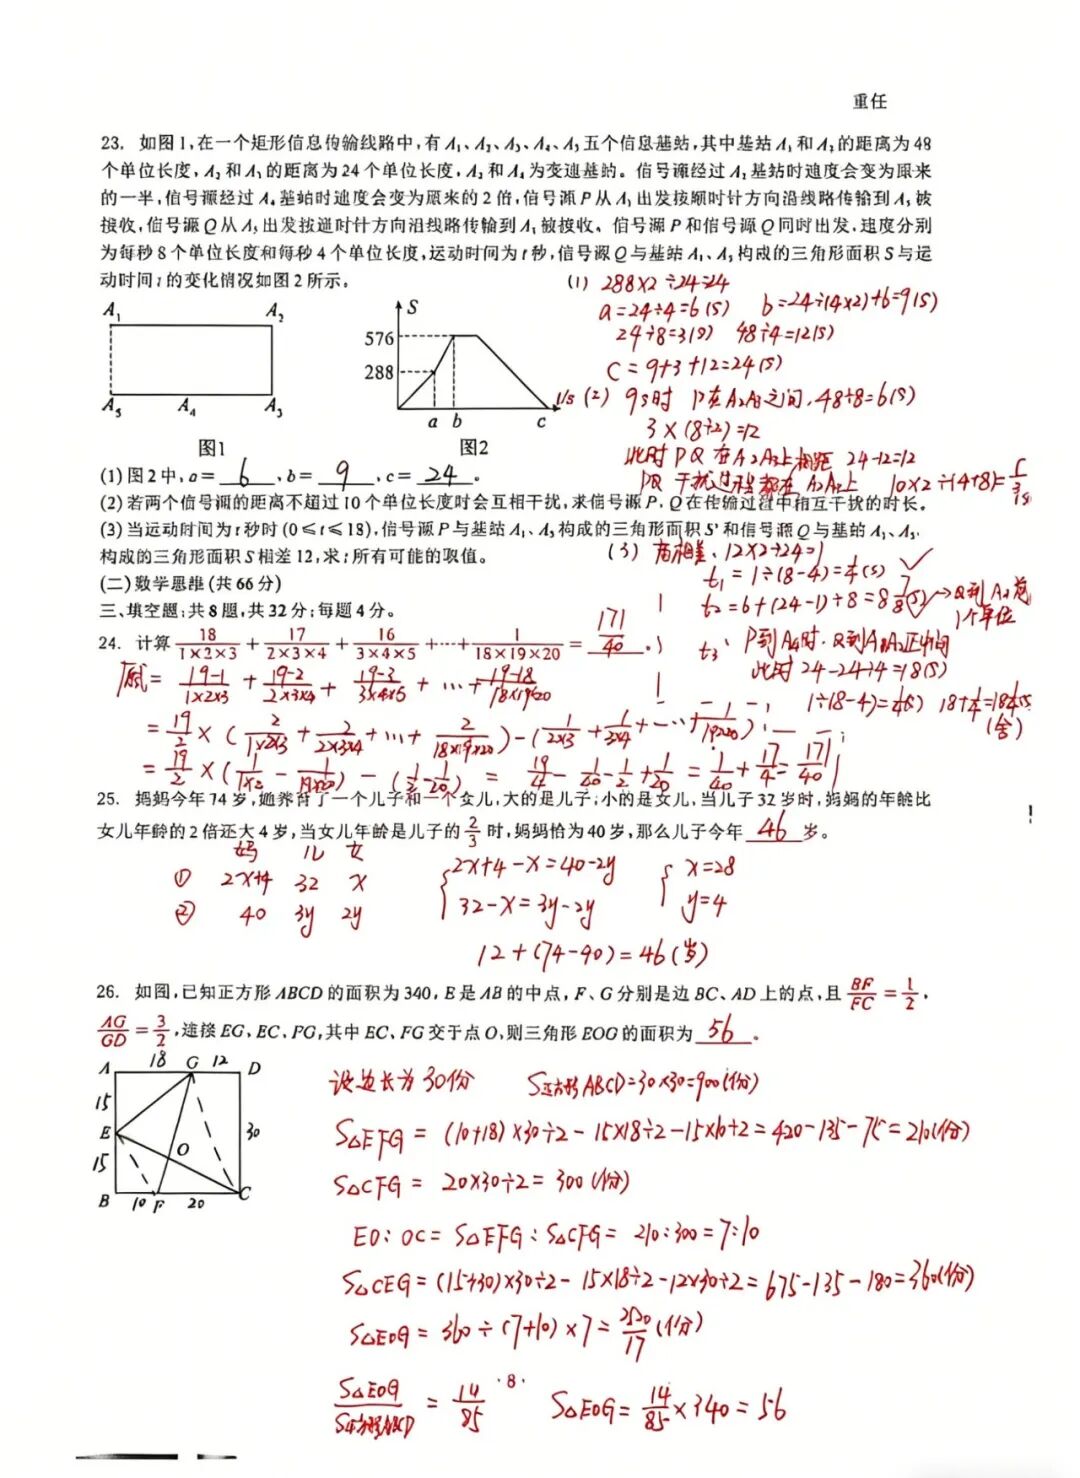 重任
23. 如图1,在一个矩形信息传输线路中,有A₁、A₂、A₃、A₄、A₅五个信息基站,其中基站A₁和A₂的距离为48
个单位长度,A₂和A₃的距离为24个单位长度,A₂和A₄为变速基站。信号源经过A₂基站时速度会变为原来
的一半,信号源经过A₄基站时速度会变为原来的2倍,信号源P从A₁出发按顺时针方向沿线路传输到A₅被
接收,信号源Q从A₅出发按逆时针方向沿线路传输到A₁被接收。信号源P和信号源Q同时出发,速度分别
为每秒8个单位长度和每秒4个单位长度,运动时间为t秒,信号源Q与基站A₁、A₅构成的三角形面积S与运
动时间t的变化情况如图2所示。
(1) 288×2÷24=24
a=24÷4=6(s) b=24÷(4×2)+6=9(s)
24÷8=3(s) 48÷4=12(s)
C=9+3+12=24(s)
A₁ A₂
A₅ A₄ A₃
图1
S
576
288
a b c
t/s
图2
(2) 9s时 P在A₂A₃之间,48÷8=6(s)
3×(8÷2)=12
此时PQ在A₂A₃上相距 24-12=12
PQ干扰过程都在A₂A₃上 10×2÷(4+8)=5/3(s)
(1)图2中,a=6,b=9,c=24。
(2)若两个信号源的距离不超过10个单位长度时会互相干扰,求信号源P、Q在传输过程中相互干扰的时长。
(3)当运动时间为t秒时(0≤t≤18),信号源P与基站A₁、A₅构成的三角形面积S'和信号源Q与基站A₁、A₅
构成的三角形面积S相差12,求t所有可能的取值。
(3) 高相差:12×2÷24=1
t₁=1÷(8-4)=1/4(s)
t₂=6+(24-1)÷8=8 7/8(s) →Q到A₂差
1个单位
t₃: P到A₄时,Q到A₁A₂正中间
此时 24-24÷4=18(s)
1÷(8-4)=1/4(s) 18+1/4=18 1/4(s)
(舍)
(二)数学思维(共66分)
三、填空题:共8题,共32分;每题4分。
24. 计算 18/(1×2×3) + 17/(2×3×4) + 16/(3×4×5) +…+ 1/(18×19×20) = 171/40。
原式= (19-1)/(1×2×3) + (19-2)/(2×3×4) + (19-3)/(3×4×5) +…+ (19-18)/(18×19×20)
= 19/2 ×( 2/(1×2×3) + 2/(2×3×4) +…+ 2/(18×19×20) ) - ( 1/(2×3) + 1/(3×4) +…+ 1/(19×20) )
= 19/2 ×( 1/(1×2) - 1/(19×20) ) - ( 1/2 - 1/20 ) = 19/4 - 1/40 - 1/2 + 1/20 = 1/40 + 17/4 = 171/40
25. 妈妈今年74岁,她养育了一个儿子和一个女儿,大的是儿子,小的是女儿,当儿子32岁时,妈妈的年龄比
女儿年龄的2倍还大4岁,当女儿年龄是儿子的2/3时,妈妈恰为40岁,那么儿子今年46岁。
妈 儿 女
① 2x+4 32 x
② 40 3y 2y
{ 2x+4-x=40-2y
32-x=3y-2y
{ x=28
y=4
12+(74-40)=46(岁)
26. 如图,已知正方形ABCD的面积为340,E是AB的中点,F、G分别是边BC、AD上的点,且BF/FC=1/2,
AG/GD=3/2,连接EG、EC、FG,其中EC、FG交于点O,则三角形EOG的面积为56。
A 18 G 12 D
15
E 30
O
15
B 10 F 20 C
设边长为30份 S正方形ABCD=30×30=900(份)
S△EFG=(10+18)×30÷2-15×18÷2-15×10÷2=420-135-75=210(份)
S△CFG=20×30÷2=300(份)
EO:OC=S△EFG:S△CFG=210:300=7:10
S△CEG=(15+30)×30÷2-15×18÷2-12×30÷2=675-135-180=360(份)
S△EOG=360÷(7+10)×7=2520/17(份)
S△EOG/S正方形ABCD=14/85 S△EOG=14/85×340=56
·8·